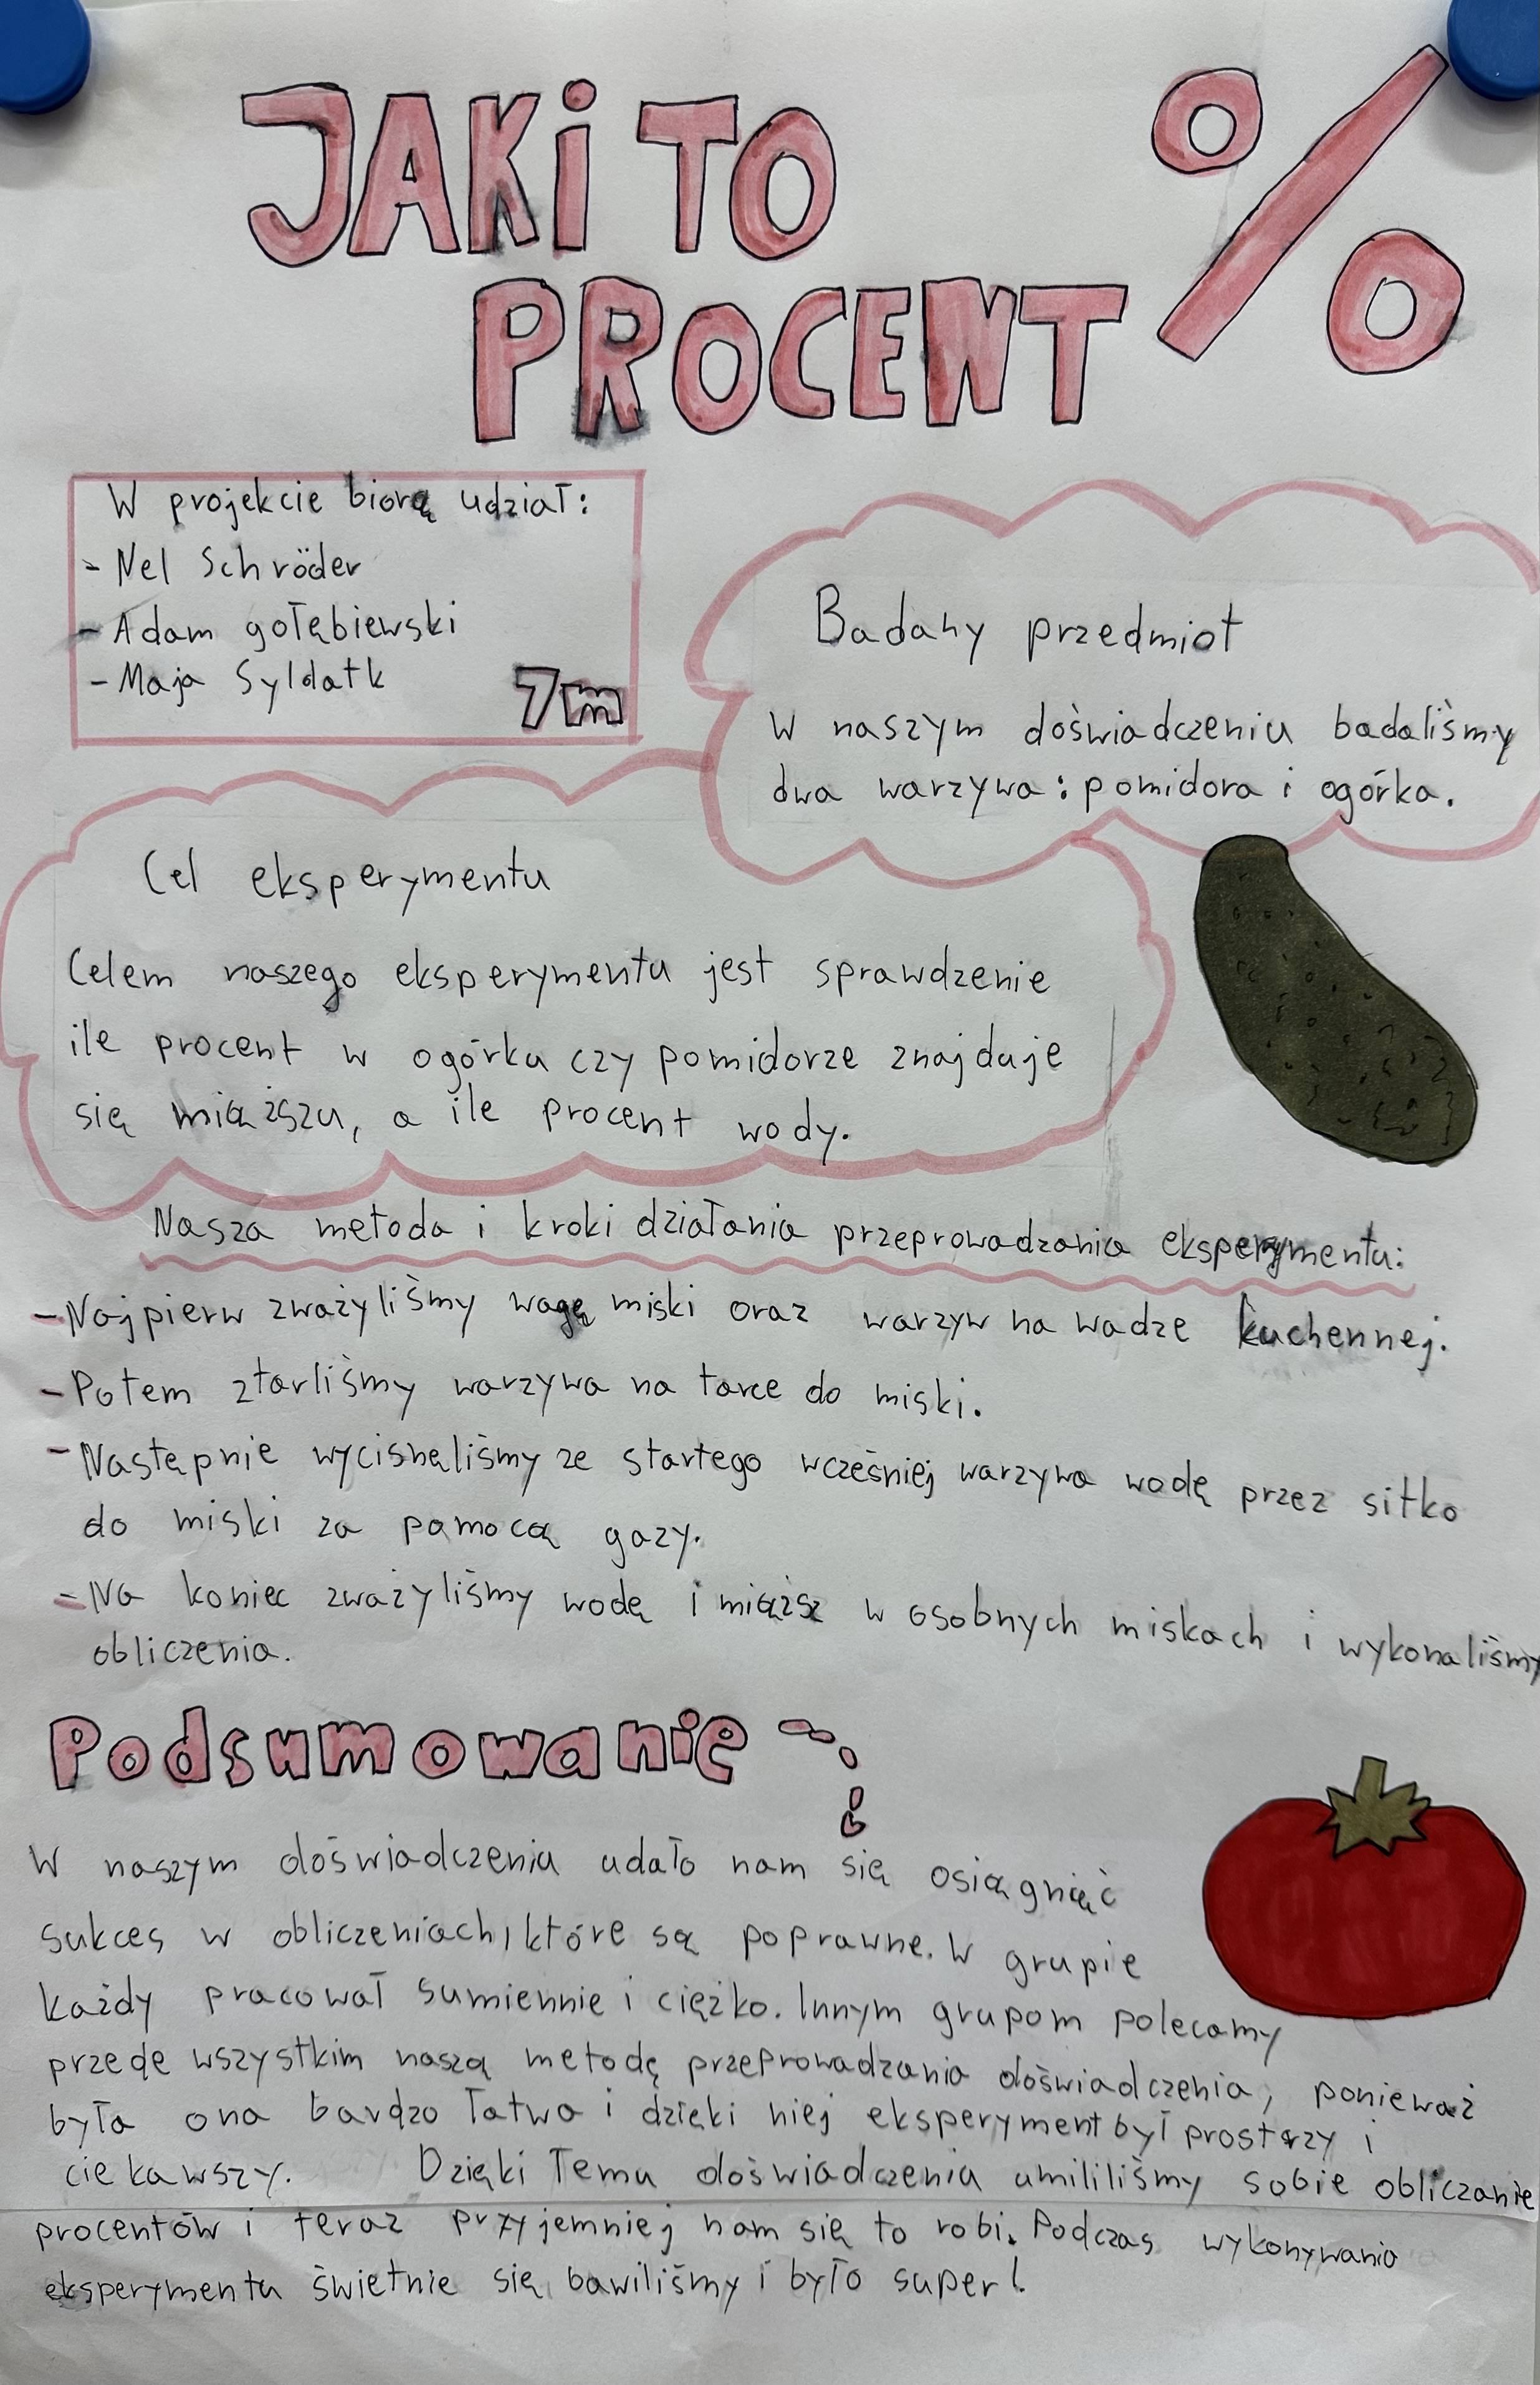 JAKi TO %
PROCENT
W projekcie biorą udział:
- Nel Schröder
- Adam gołębiewski
- Maja Syldatk
7m
Badany przedmiot
W naszym doświadczeniu badaliśmy
dwa warzywa: pomidora i ogórka.
Cel eksperymentu
Celem naszego eksperymentu jest sprawdzenie
ile procent w ogórku czy pomidorze znajduje
się miąższu, a ile procent wody.
Nasza metoda i kroki działania przeprowadzania eksperymentu:
- Najpierw zważyliśmy wagę miski oraz warzyw na wadze kuchennej.
- Potem ztarliśmy warzywa na tarce do miski.
- Następnie wycisnęliśmy ze startego wcześniej warzywa wodę przez sitko
do miski za pomocą gazy.
- Na koniec zważyliśmy wodę i miąższ w osobnych miskach i wykonaliśmy
obliczenia.
Podsumowanie
W naszym doświadczeniu udało nam się osiągnięć
sukces w obliczeniach, które są poprawne. W grupie
każdy pracował sumiennie i ciężko. Innym grupom polecamy
przede wszystkim naszą metodę przeprowadzania doświadczenia, ponieważ
była ona bardzo łatwa i dzięki niej eksperyment był prostszy i
ciekawszy. Dzięki Temu doświadczeniu umililiśmy sobie obliczanie
procentów i teraz przyjemniej nam się to robi. Podczas wykonywania
eksperymentu świetnie się bawiliśmy i było super!